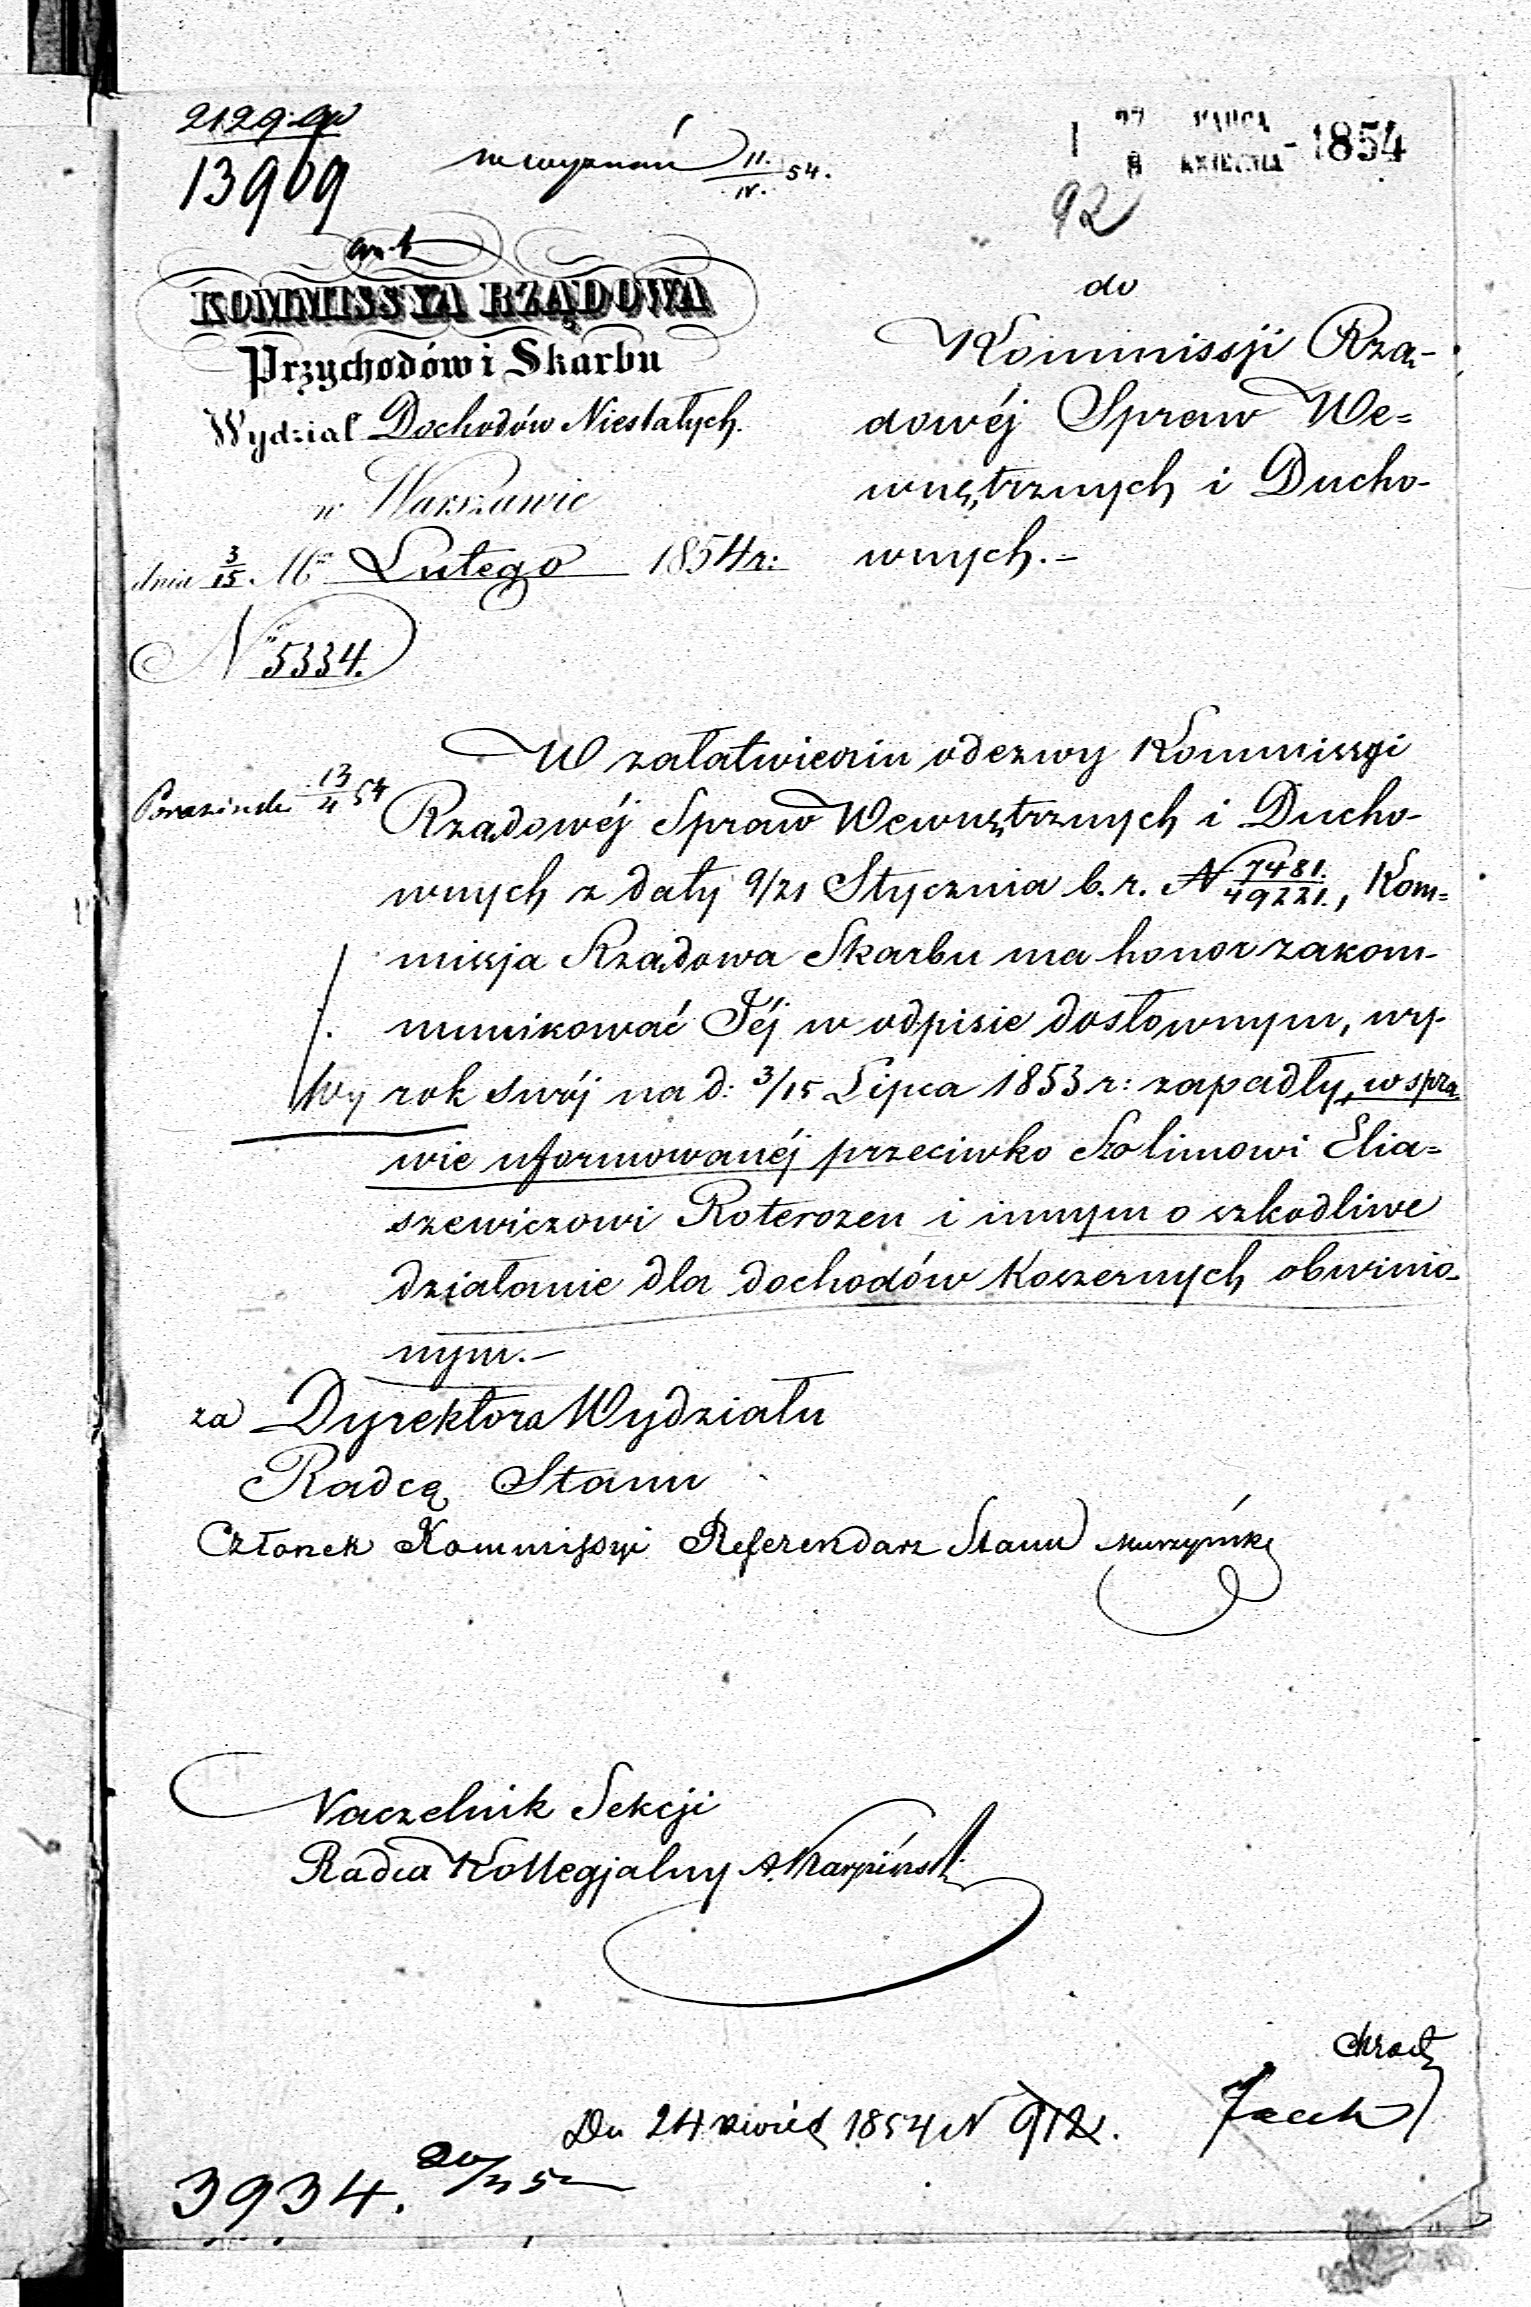 2129.
13909
11./IV. 54.
1 27 MARCA / 8 KWIETNIA - 1854
92
KOMMISSYA RZĄDOWA
Przychodów i Skarbu
Wydział Dochodów Niestałych.
w Warszawie
dnia 3/15. Mca Lutego 1854 r:
No 5334.
do
Kommissji Rzą-
dowéj Spraw We=
wnętrznych i Ducho-
wnych.-
W załatwieniu odezwy Kommissyi
13/4 54
Rządowéj Spraw Wewnętrznych i Ducho-
wnych z daty 9/21 Stycznia b.r. N 7481./49221., Kom=
missja Rządowa Skarbu ma honor zakom-
munikować Jéj w odpisie dosłownym, wy-
rok swój na d: 3/15 Lipca 1853 r: zapadły, w spra-
wie uformowanéj przeciwko Szolimowi Elia=
szewiczowi Roterozen i innym o szkodliwe
działanie dla dochodów Koszernych obwinio-
nym.-
za Dyrektora Wydziału
Radcą Stanu
Członek Kommissyi Referendarz Stanu
Naczelnik Sekcji
Radca Kollegjalny A. Karpiński
Dn 24 1854 N 912.
3934.